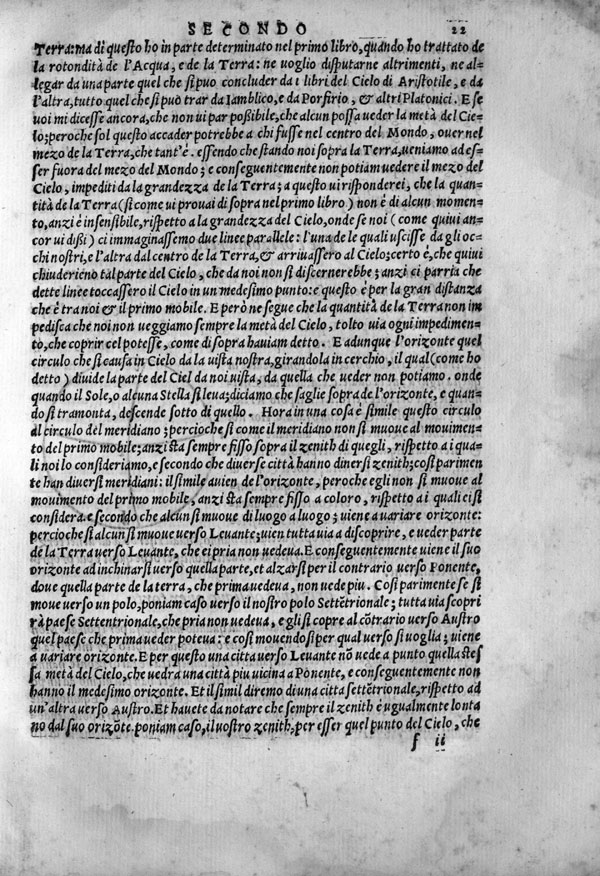 SECONDO 22
Terra: ma di questo ho in parte determinato nel primo libro, quando ho trattato de
la rotondità de l'Acqua, e de la Terra: ne uoglio disputarne altrimenti, ne al=
legar da una parte quel che si puo concluder da i libri del Cielo di Aristotile, e da
l'altra, tutto quel che si può trar da Iamblico, e da Porfirio, & altri Platonici. E se
uoi mi dicesse ancora, che non ui par poßibile, che alcun possa ueder la metà del Cie=
lo; peroche sol questo accader potrebbe a chi fusse nel centro del Mondo, ouer nel
mezo de la Terra, che tant'è. essendo che stando noi sopra la Terra, ueniamo ad es=
ser fuora del mezo del Mondo; e conseguentemente non potiam uedere il mezo del
Cielo, impediti da la grandezza de la Terra; a questo ui risponderei, che la quan=
tità de la Terra (si come ui prouai di sopra nel primo libro) non è di alcun momen=
to, anzi è insensibile, rispetto a la grandezza del Cielo, onde se noi (come quiui an=
cor ui dißi) ci immaginassemo due linee parallele: l'una de le quali uscisse da gli oc=
chi nostri, e l'altra dal centro de la Terra, & arriuassero al Cielo; certo è, che quiui
chiuderieno tal parte del Cielo, che da noi non si discernerebbe; anzi ci parria che
dette linee toccassero il Cielo in un medesimo punto: e questo è per la gran distanza
che è tra noi & il primo mobile. E però ne segue che la quantità de la Terra non im
pedisca che noi non ueggiamo sempre la metà del Cielo, tolto uia ogni impedimen=
to, che coprir cel potesse, come di sopra hauiam detto. E adunque l'orizonte quel
circulo che si causa in Cielo da la uista nostra, girandola in cerchio, il qual (come ho
detto) diuide la parte del Ciel da noi uista, da quella che ueder non potiamo. onde
quando il Sole, o alcuna Stella si leua; diciamo che saglie sopra de l'orizonte, e quan=
do si tramonta, descende sotto di quello. Hora in una cosa è simile questo circulo
al circulo del meridiano; percioche si come il meridiano non si muoue al mouimen=
to del primo mobile; anzi sta sempre fisso sopra il zenith di quegli, rispetto a i qua=
li noi lo consideriamo, e secondo che diuerse città hanno diuersi zenith; così parimen
te han diuersi meridiani: il simile auien de l'orizonte, peroche egli non si muoue al
mouimento del primo mobile, anzi sta sempre fisso a coloro, rispetto a i quali ci si
considera. e secondo che alcun si muoue di luogo a luogo; uiene a uariare orizonte:
percioche si alcun si muoue uerso Leuante; uien tutta uia a discoprire, e ueder parte
de la Terra uerso Leuante, che ei pria non uedeua. E conseguentemente uiene il suo
orizonte ad inchinarsi uerso quella parte, et alzarsi per il contrario uerso Ponente,
doue quella parte de la terra, che prima uedeua, non uede piu. Così parimente se si
moue uerso un polo, poniam caso uerso il nostro polo Settẽtrionale; tutta uia scopri
rà paese Settentrionale, che pria non uedeua, e gli si copre al cõtrario uerso Austro
quel paese che prima ueder poteua: e così mouendosi per qual uerso si uoglia; uiene
a uariare orizonte. E per questo una citta uerso Leuante nõ uede a punto quella stes
sa metà del Cielo, che uedra una città piu uicina a Ponente, e conseguentemente non
hanno il medesimo orizonte. Et il simil diremo di una città settẽtrionale, rispetto ad
un'altra uerso Austro. Et hauete da notare che sempre il zenith è ugualmente lonta
no dal suo orizõte. poniam caso, il uostro zenith, per esser quel punto del Cielo, che
f ii